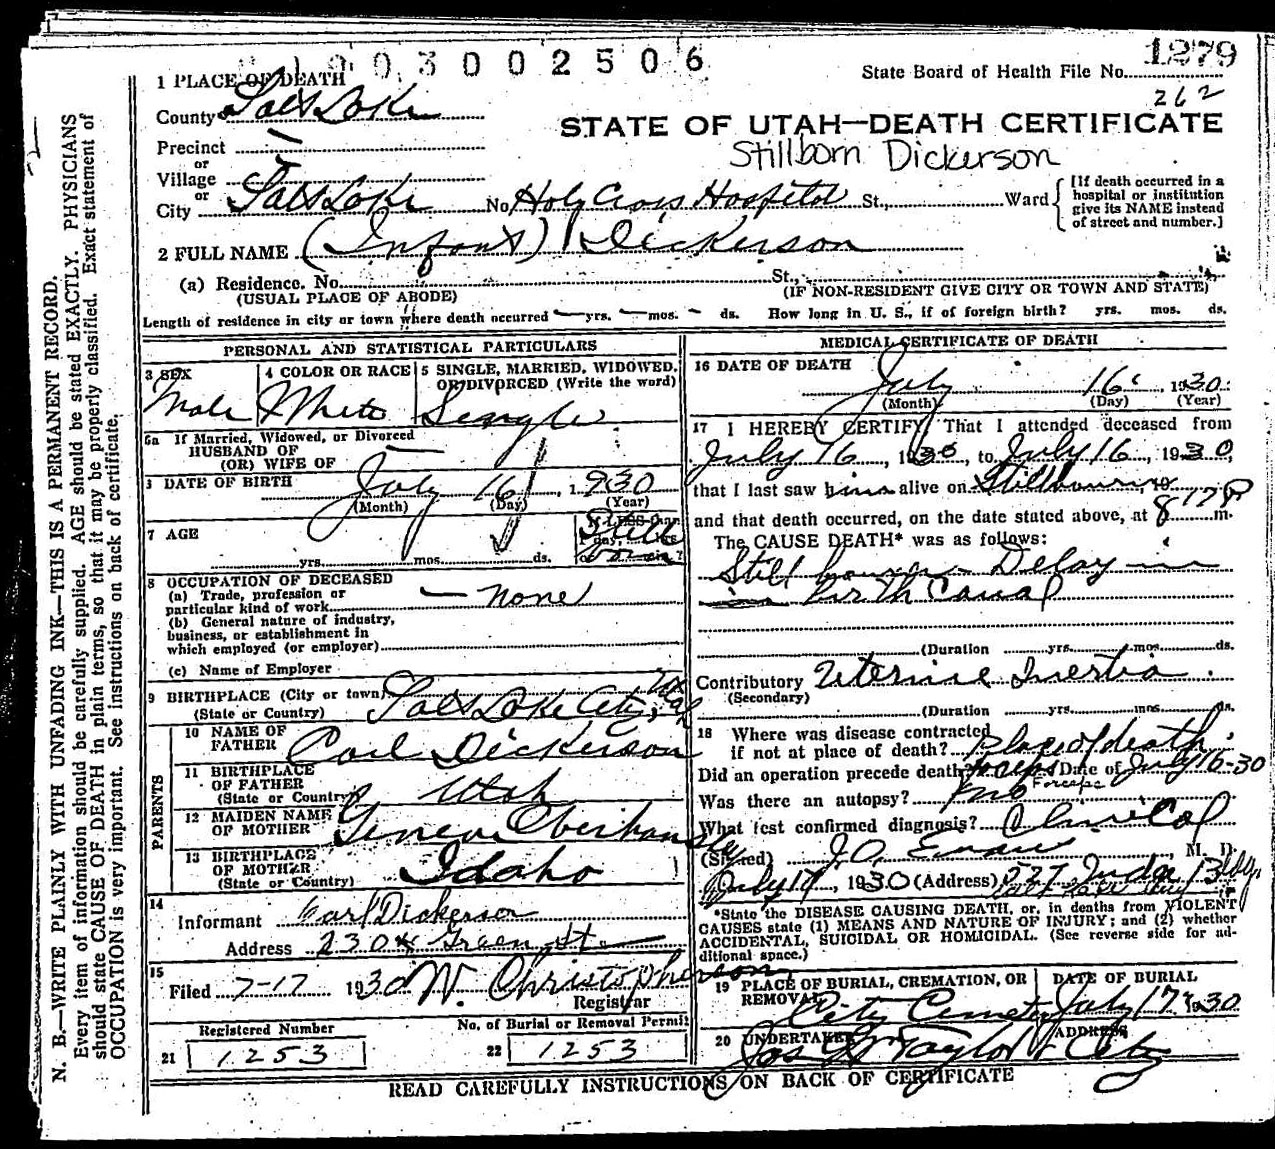 1003002506
1279
State Board of Health File No.
262
1 PLACE OF DEATH
County Salt Lake
STATE OF UTAH—DEATH CERTIFICATE
Stillborn Dickerson
Precinct
or
Village
or
City Salt Lake No. Holy Cross Hospital St., Ward
[If death occurred in a
hospital or institution
give its NAME instead
of street and number.]
2 FULL NAME (Infant) Dickerson
(a) Residence. No. St.,
(USUAL PLACE OF ABODE) (IF NON-RESIDENT GIVE CITY OR TOWN AND STATE)
Length of residence in city or town where death occurred — yrs. — mos. — ds. How long in U. S., if of foreign birth? yrs. mos. ds.
PERSONAL AND STATISTICAL PARTICULARS
3 SEX 4 COLOR OR RACE 5 SINGLE, MARRIED, WIDOWED,
OR DIVORCED (Write the word)
Male White Single
6a If Married, Widowed, or Divorced
HUSBAND OF
(OR) WIFE OF
DATE OF BIRTH July 16, 1930
(Month) (Day) (Year)
7 AGE Still
born
yrs. mos. ds.
8 OCCUPATION OF DECEASED
(a) Trade, profession or
particular kind of work — none
(b) General nature of industry,
business, or establishment in
which employed (or employer)
(c) Name of Employer
9 BIRTHPLACE (City or town)
(State or Country) Salt Lake City, Utah
PARENTS
10 NAME OF
FATHER Carl Dickerson
11 BIRTHPLACE
OF FATHER
(State or Country) Utah
12 MAIDEN NAME
OF MOTHER Geneva Oberhansly
13 BIRTHPLACE
OF MOTHER
(State or Country) Idaho
14
Informant Carl Dickerson
Address 2304 Green St
15
Filed 7-17 1930 W. Christopherson
Registrar
Registered Number No. of Burial or Removal Permit
21 1253 22 1253
MEDICAL CERTIFICATE OF DEATH
16 DATE OF DEATH
July 16 1930
(Month) (Day) (Year)
17 I HEREBY CERTIFY, That I attended deceased from
July 16, 1930, to July 16, 1930,
that I last saw him alive on Stillborn
and that death occurred, on the date stated above, at 8 17 P m.
The CAUSE DEATH* was as follows:
Still born Delay in
in birth Canal
(Duration yrs. mos. ds.
Contributory Uterine Inertia
(Secondary)
(Duration yrs. mos. ds.
18 Where was disease contracted
if not at place of death? place of death
Did an operation precede death? Forceps Date of July 16-30
Was there an autopsy? no Forceps
What test confirmed diagnosis? Clinical
(Signed) J.O. Evans, M. D.
July 17, 1930 (Address)
*State the DISEASE CAUSING DEATH, or, in deaths from VIOLENT
CAUSES state (1) MEANS AND NATURE OF INJURY; and (2) whether
ACCIDENTAL, SUICIDAL OR HOMICIDAL. (See reverse side for ad-
ditional space.)
19 PLACE OF BURIAL, CREMATION, OR DATE OF BURIAL
REMOVAL
City Cemetery July 17 1930
20 UNDERTAKER ADDRESS
Jos Wm Taylor City
READ CAREFULLY INSTRUCTIONS ON BACK OF CERTIFICATE
N. B.—WRITE PLAINLY WITH UNFADING INK—THIS IS A PERMANENT RECORD.
Every item of information should be carefully supplied. AGE should be stated EXACTLY. PHYSICIANS
should state CAUSE OF DEATH in plain terms, so that it may be properly classified. Exact statement of
OCCUPATION is very important. See instructions on back of certificate.